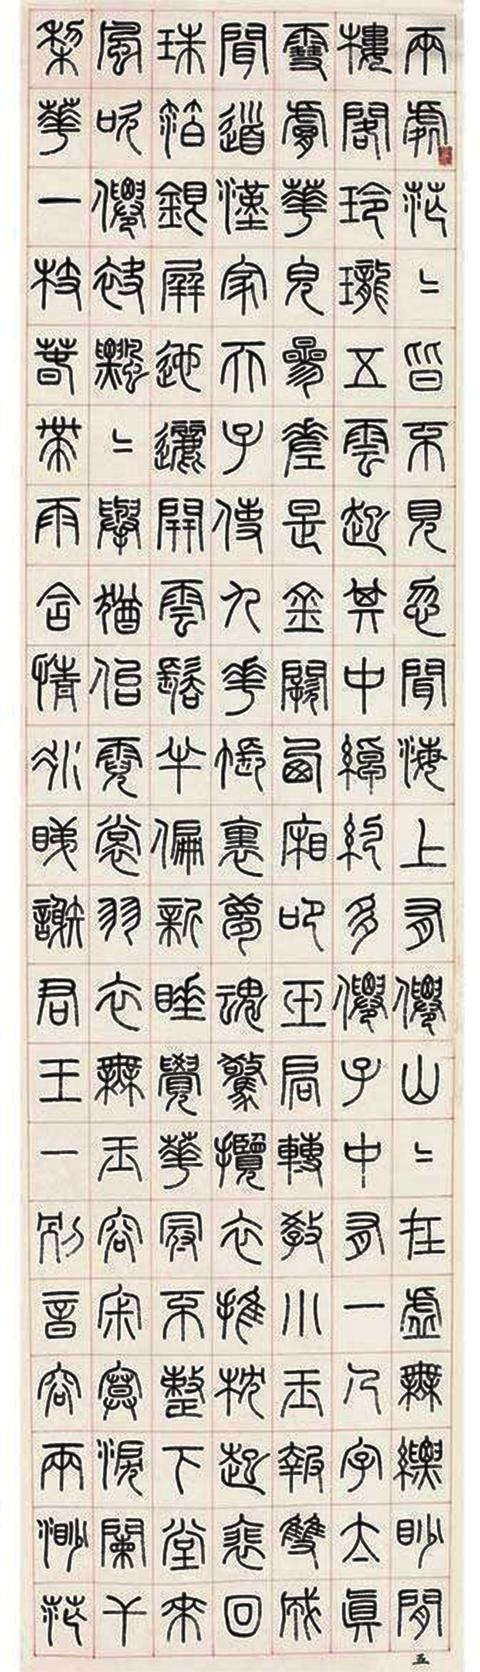 兩處茫〻皆不見忽聞海上有僊山〻在虛無縹眇閒
樓閣玲瓏五雲起其中綽約多僊子中有一人字太眞
雪膚華皃參差是金闕西廂叩玉扃轉教小玉報雙成
聞道漢家天子使九華帳裏夢魂驚攬衣推枕起裵回
珠箔銀屏迤邐開雲鬢半偏新睡覺華冠不整下堂來
風吹僊袂飄〻舉猶佀霓裳羽衣舞玉容寂寞淚闌干
梨華一枝春帶雨含情冰睇謝君王一別音容兩渺茫
五